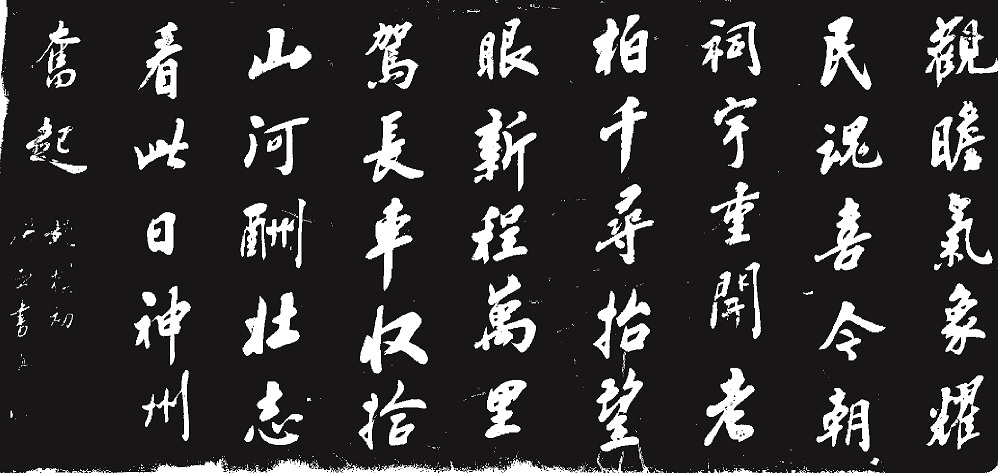 觀瞻氣象耀
民魂喜今朝
祠宇重開老
柏千尋抬望
眼新程萬里
駕長車収拾
山河酬壯志
看此日神州
奮起
趙樸初
書